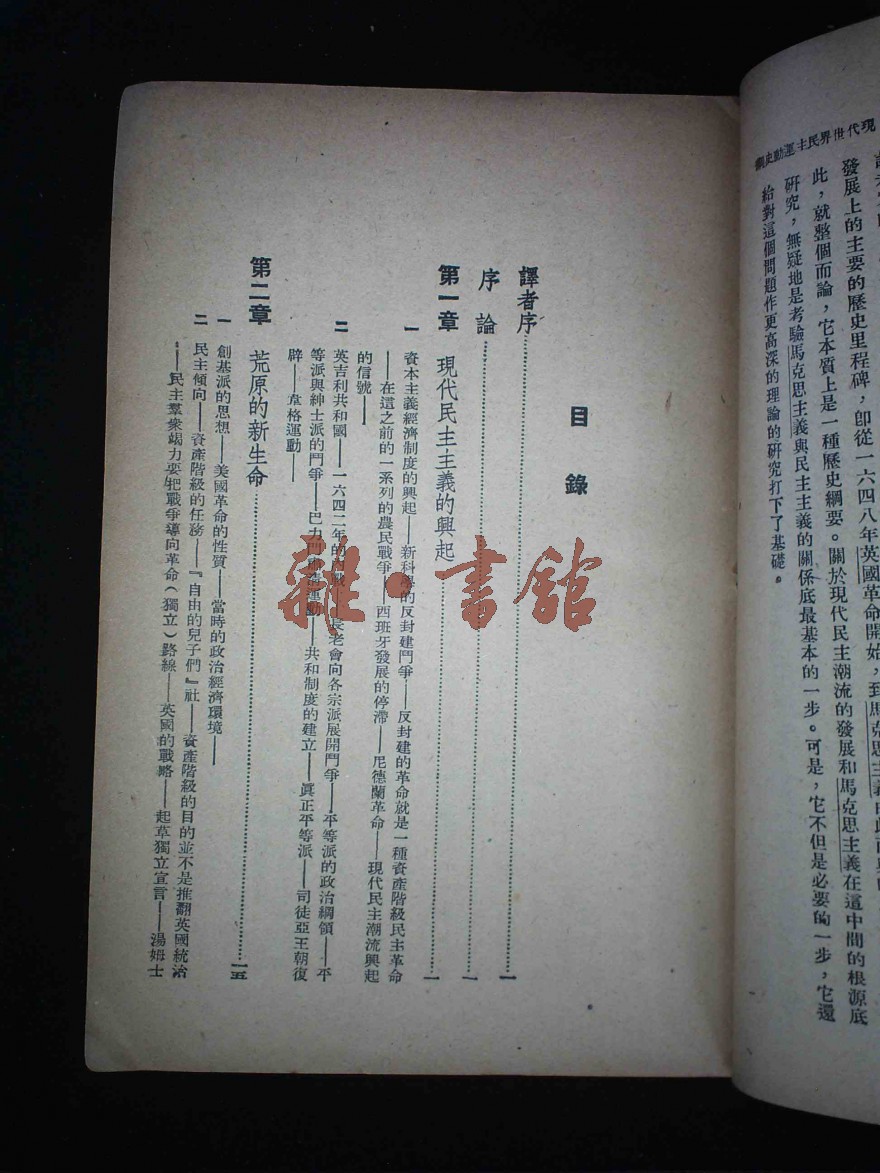 現代世界民主運動史綱
發展上的主要的歷史里程碑，即從一六四八年英國革命開始，到馬克思主義
此，就整個而論，它本質上是一種歷史綱要。關於現代民主潮流的發展和馬克思主義在這中間的根源底
研究，無疑地是考驗馬克思主義與民主主義的關係底最基本的一步。可是，它不但是必要的一步，它還
給對這個問題作更高深的理論的研究打下了基礎。
目錄
譯者序……一
序論……一
第一章 現代民主主義的興起……一
一 資本主義經濟制度的興起——新科學的反封建鬥爭——反封建的革命就是一種資產階級民主革命
——在這之前的一系列的農民戰爭——西班牙發展的停滯——尼德蘭革命——現代民主潮流興起
的信號——
二 英吉利共和國——一六四二年的內戰——長老會向各宗派展開鬥爭——平等派的政治綱領——平
等派與紳士派的鬥爭——巴力門肅清運動——共和制度的建立——眞正平等派——司徒亞王朝復
辟——韋格運動——
第二章 荒原的新生命……一五
一 創基派的思想——美國革命的性質——當時的政治經濟環境——
二 民主傾向——資產階級的任務——『自由的兒子們』社——資產階級的目的並不是推翻英國統治
——民主羣衆竭力要把戰爭導向革命（獨立）路線——英國的戰略——起草獨立宣言——湯姆士
雜·書館